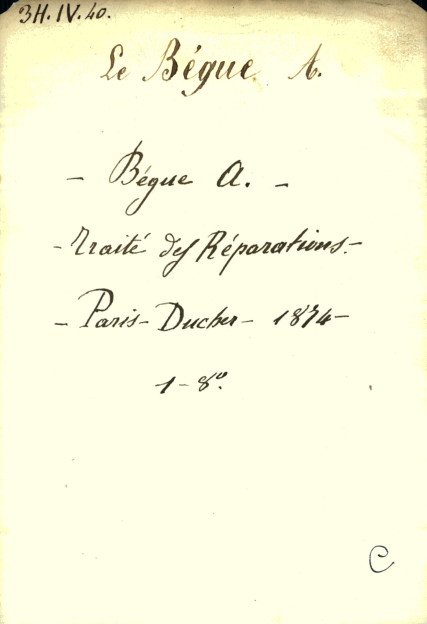 3H.IV.40.
Le Bégue A.
- Bégue A. -
- Traité des Réparations. -
- Paris - Ducher - 1874 -
1 - 8º.
C